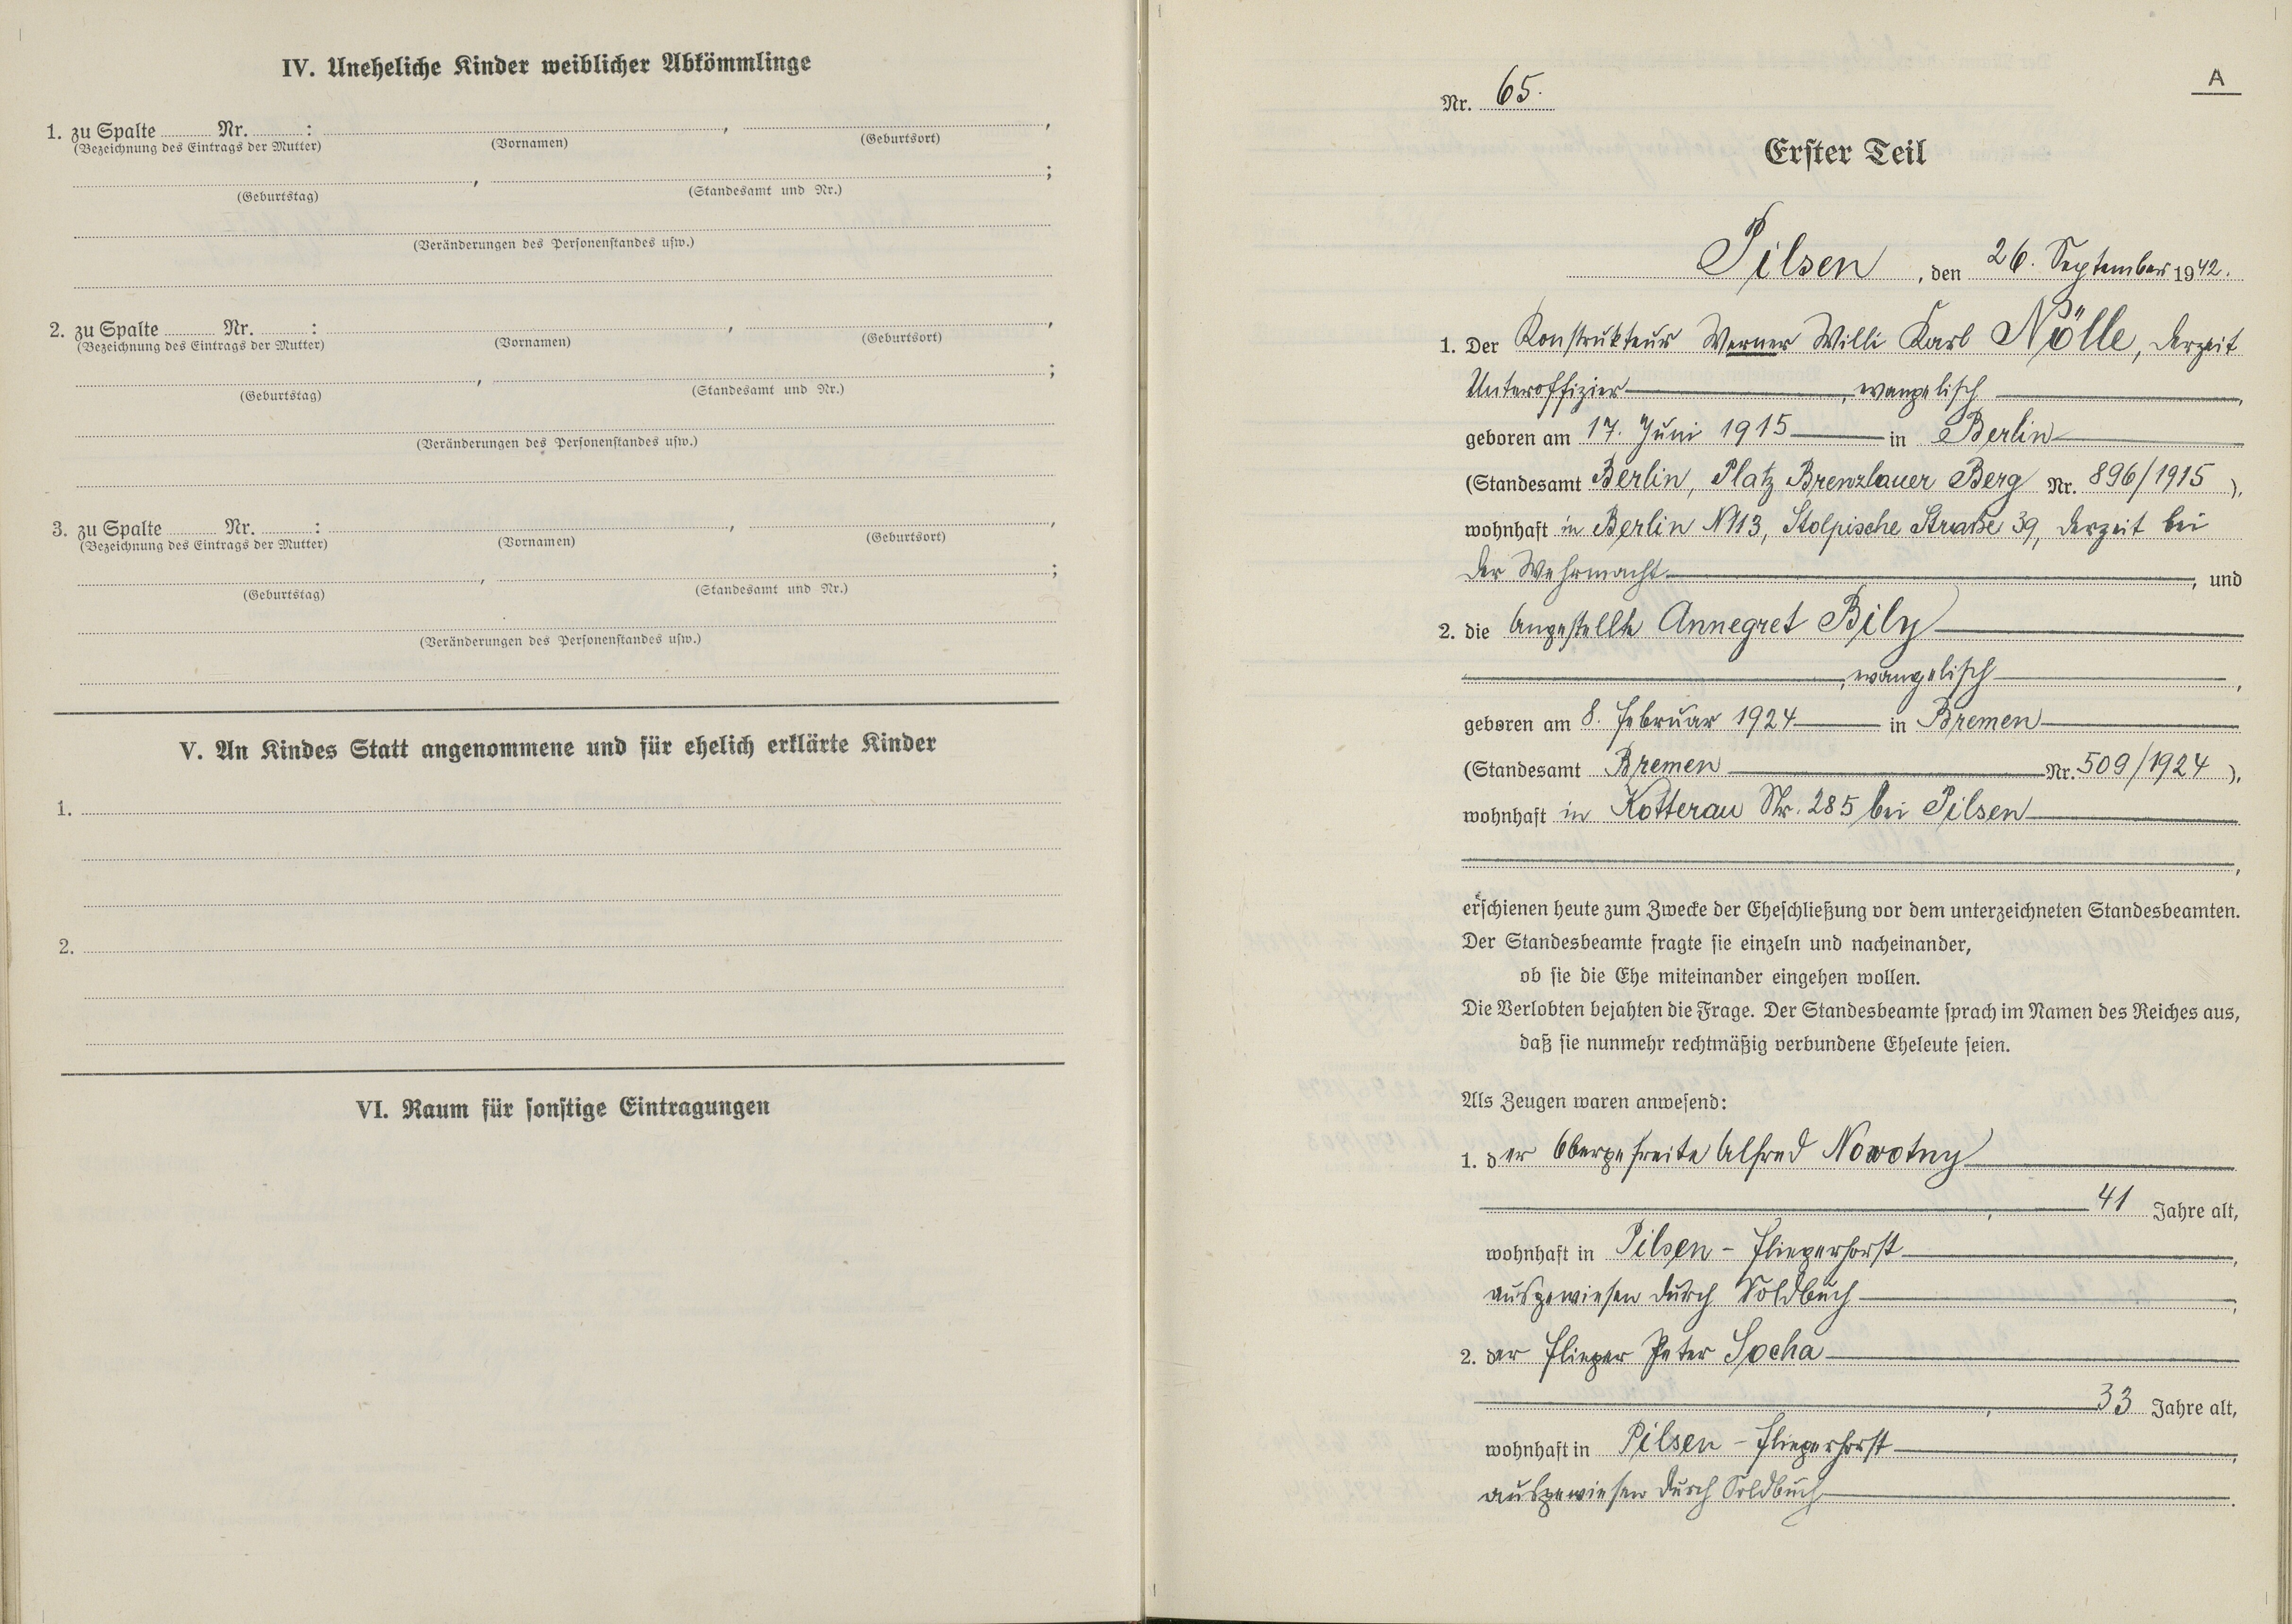 IV. Uneheliche Kinder weiblicher Abkömmlinge
1. zu Spalte ........ Nr. ........ : ........ , ........ ,
(Bezeichnung des Eintrags der Mutter) (Vornamen) (Geburtsort)
........ , ........ ;
(Geburtstag) (Standesamt und Nr.)
(Veränderungen des Personenstandes usw.)
2. zu Spalte ........ Nr. ........ : ........ , ........ ,
(Bezeichnung des Eintrags der Mutter) (Vornamen) (Geburtsort)
........ , ........ ;
(Geburtstag) (Standesamt und Nr.)
(Veränderungen des Personenstandes usw.)
3. zu Spalte ........ Nr. ........ : ........ , ........ ,
(Bezeichnung des Eintrags der Mutter) (Vornamen) (Geburtsort)
........ , ........ ;
(Geburtstag) (Standesamt und Nr.)
(Veränderungen des Personenstandes usw.)
V. An Kindes Statt angenommene und für ehelich erklärte Kinder
1.
2.
VI. Raum für sonstige Eintragungen
A
Nr. 65.
Erster Teil
Pilsen, den 26. September 1942.
1. Der Konstrukteur Werner Willi Karl Nölle, derzeit
Unteroffizier, evangelisch,
geboren am 17. Juni 1915 in Berlin
(Standesamt Berlin, Platz Brenzlauer Berg Nr. 896/1915),
wohnhaft in Berlin N113, Stolpische Straße 39, derzeit bei
der Wehrmacht, und
2. die Angestellte Annegret Bily
, evangelisch,
geboren am 8. Februar 1924 in Bremen
(Standesamt Bremen Nr. 509/1924),
wohnhaft in Kotterau Nr. 285 bei Pilsen
,
erschienen heute zum Zwecke der Eheschließung vor dem unterzeichneten Standesbeamten.
Der Standesbeamte fragte sie einzeln und nacheinander,
ob sie die Ehe miteinander eingehen wollen.
Die Verlobten bejahten die Frage. Der Standesbeamte sprach im Namen des Reiches aus,
daß sie nunmehr rechtmäßig verbundene Eheleute seien.
Als Zeugen waren anwesend:
1. der Obergefreite Alfred Nowotny
, 41 Jahre alt,
wohnhaft in Pilsen - Fliegerhorst,
ausgewiesen durch Soldbuch,
2. der Flieger Peter Socha
, 33 Jahre alt,
wohnhaft in Pilsen - Fliegerhorst,
ausgewiesen durch Soldbuch.